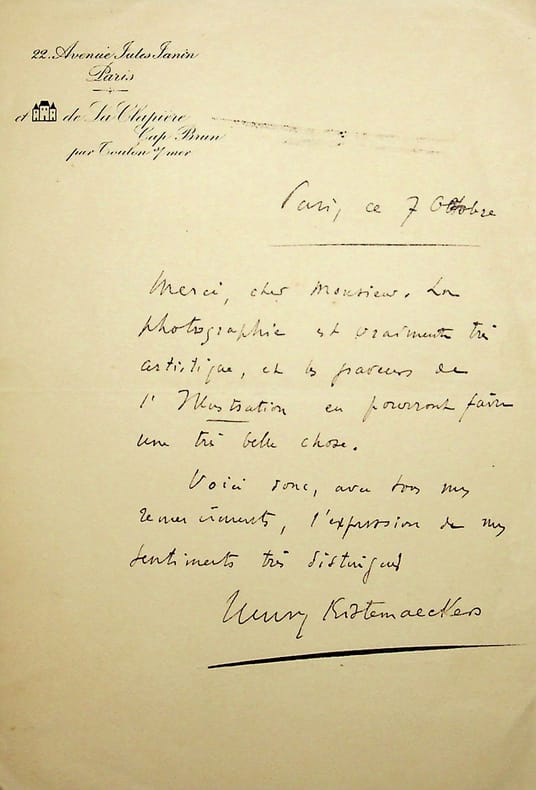 22. Avenue Jules Janin
Paris
et de La Clapière
Cap Brun
par Toulon s/mer
Paris, ce 7 Octobre
Merci, cher Monsieur. La
photographie est vraiment très
artistique, et les graveurs de
l'Illustration en pourront faire
une très belle chose.
Voici donc, avec tous mes
remerciements, l'expression de mes
sentiments très distingués
Henry Kistemaeckers